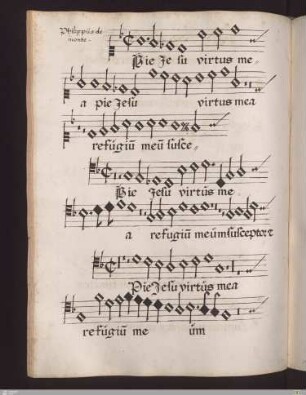 Philippus de
monte.
Pie Je su virtus me-
a pie Jesu virtus mea
refúgiũ meũ susce-
Pie Jesu virtús me
a refugiũ meùm susceptor et
Pie Jesu virtùs mea
refúgiũ me úm